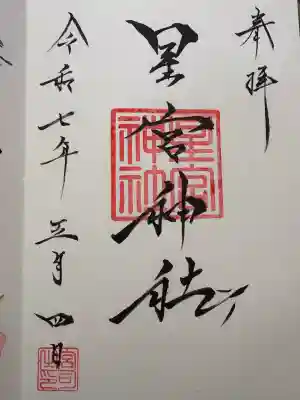 奉拝
星宮神社
星宮神社
令和七年 五月四日